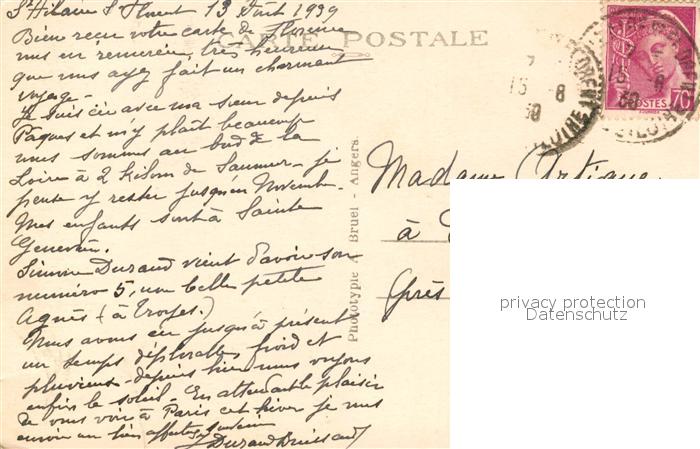 St Hilaire St Florent 13 Août 1939
CARTE POSTALE
Bien reçu votre carte de Florence
vous en remercie, très heureuse
que vous ayez fait un charmant
voyage.
Je suis ici avec ma sœur depuis
Pâques et m'y plaît beaucoup
nous sommes au bord de la
Loire à 2 kilom de Saumur - je
pense y rester jusqu'en Novembre.
Mes enfants sont à Sainte
Geneviève.
Simone Durand vient d'avoir son
numéro 5, une belle petite
Agnès (à Troyes.)
Nous avons eu jusqu'à présent
un temps déplorable, froid et
pluvieux - depuis hier nous voyons
enfin le soleil - En attendant le plaisir
de vous voir à Paris cet hiver je vous
envoie un bien affectueux souvenir
Durand
Phototypie A. Bruel - Angers
Madame Artigue
à
près
15 8
POSTES
70
privacy protection
Datenschutz